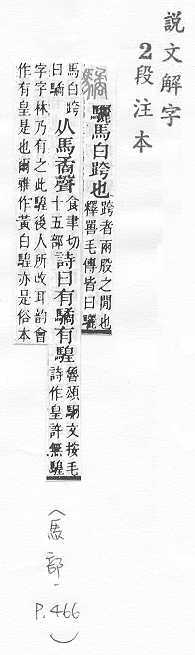 說文解字
2段注本
驈 驪馬白跨也 跨者兩股之閒也釋嘼毛傳皆曰驪
馬白跨曰驈 从馬矞聲 食聿切十五部 詩曰有驈有騜 魯頌駉文按毛詩作皇許無騜
字字林乃有之此騜後人所改耳韵會作有皇是也爾雅作黃白騜亦是俗本
(馬部. P.466)